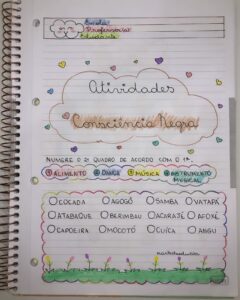 Escola:
Professor(a):
Estudante:
Atividades
Consciência Negra
NUMERE O 2º QUADRO DE ACORDO COM O 1º.
1 ALIMENTO 2 DANÇA 3 MÚSICA 4 INSTRUMENTO
MUSICAL
COCADA AGOGÔ SAMBA VATAPÁ
ATABAQUE BERIMBAU ACARAJÉ AFOXÉ
CAPOEIRA MOCOTÓ CUÍCA ANGU